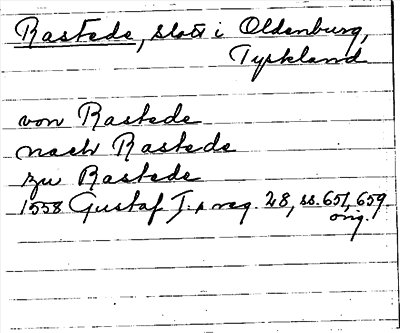 Rastede, slott i Oldenburg,
Tyskland
von Rastede
nach Rastede
zu Rastede
1558 Gustaf I:s reg. 28, ss. 651, 659
orig.